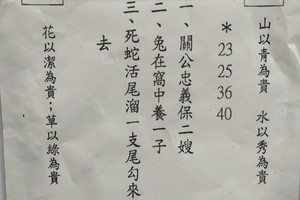 山以青為貴 水以秀為貴
*
23
25
36
40
一、關公忠義保二嫂
二、兔在窩中養一子
三、死蛇活尾溜一支尾勾來
去
花以潔為貴；草以綠為貴